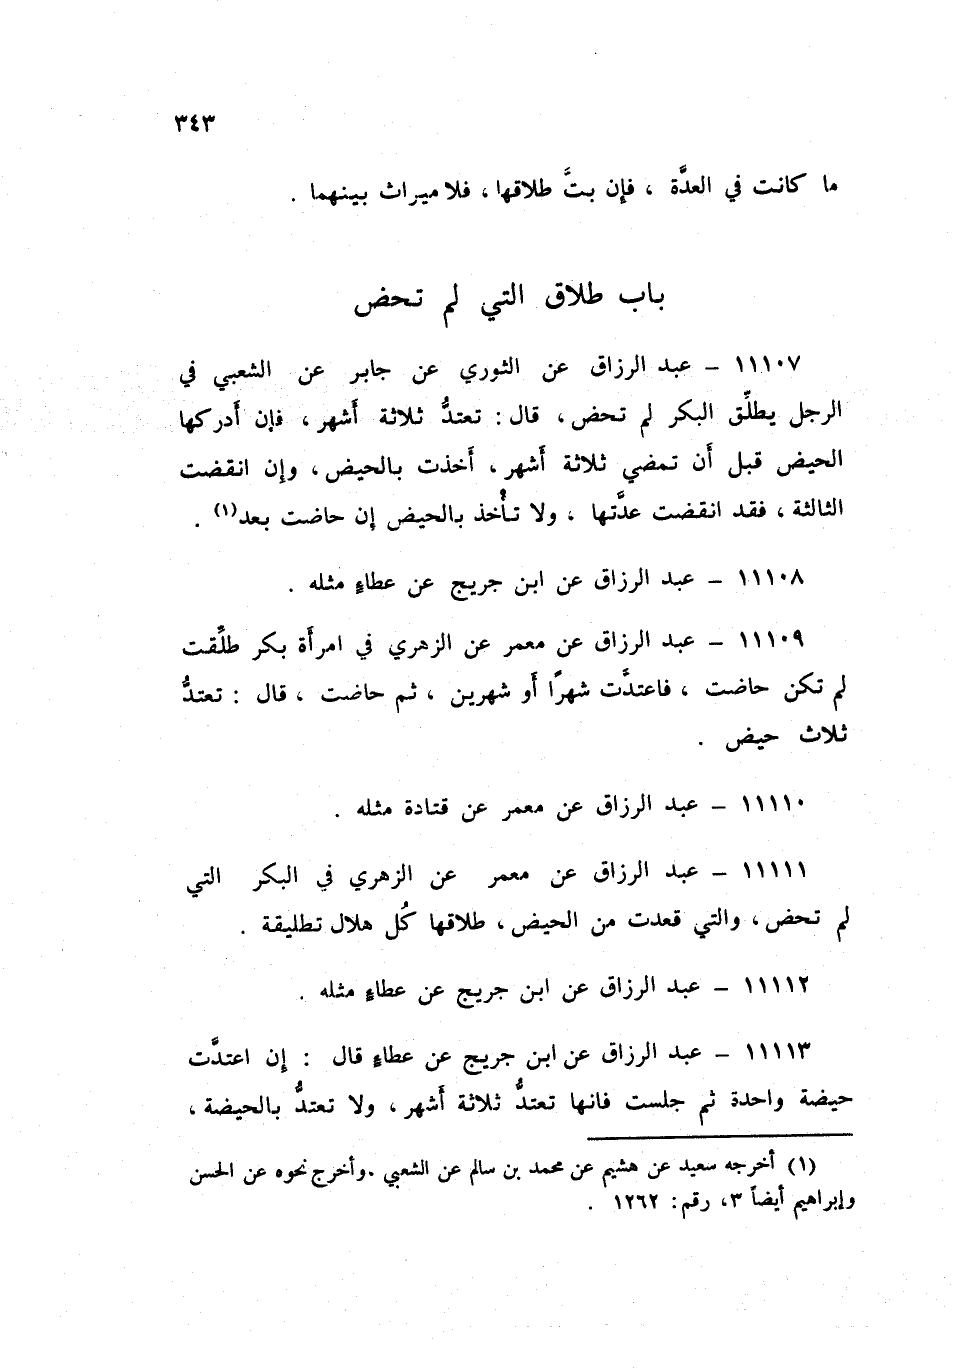 ٣٤٣
ما كانت في العدَّة ، فإن بتَّ طلاقها ، فلا ميراث بينهما .
باب طلاق التي لم تحض
١١١٠٧ – عبد الرزاق عن الثوري عن جابر عن الشعبي في
الرجل يطلِّق البكر لم تحض ، قال : تعتدُّ ثلاثة أَشهر ، فإن أَدركها
الحيض قبل أَن تمضي ثلاثة أَشهر ، أَخذت بالحيض ، وإن انقضت
الثالثة ، فقد انقضت عدَّتها ، ولا تأْخذ بالحيض إن حاضت بعد(١) .
١١١٠٨ – عبد الرزاق عن ابن جريج عن عطاءٍ مثله .
١١١٠٩ – عبد الرزاق عن معمر عن الزهري في امرأَة بكر طلِّقت
لم تكن حاضت ، فاعتدَّت شهرًا أَو شهرين ، ثم حاضت ، قال : تعتدُّ
ثلاث حيض .
١١١١٠ – عبد الرزاق عن معمر عن قتادة مثله .
١١١١١ – عبد الرزاق عن معمر عن الزهري في البكر التي
لم تحض ، والتي قعدت من الحيض ، طلاقها كُل هلال تطليقة .
١١١١٢ – عبد الرزاق عن ابن جريج عن عطاءٍ مثله .
١١١١٣ – عبد الرزاق عن ابن جريج عن عطاءٍ قال : إن اعتدَّت
حيضة واحدة ثم جلست فانها تعتدُّ ثلاثة أَشهر ، ولا تعتدُّ بالحيضة ،
(١) أخرجه سعيد عن هشيم عن محمد بن سالم عن الشعبي . وأخرج نحوه عن الحسن
وإبراهيم أيضاً ٣، رقم: ١٢٦٢ .